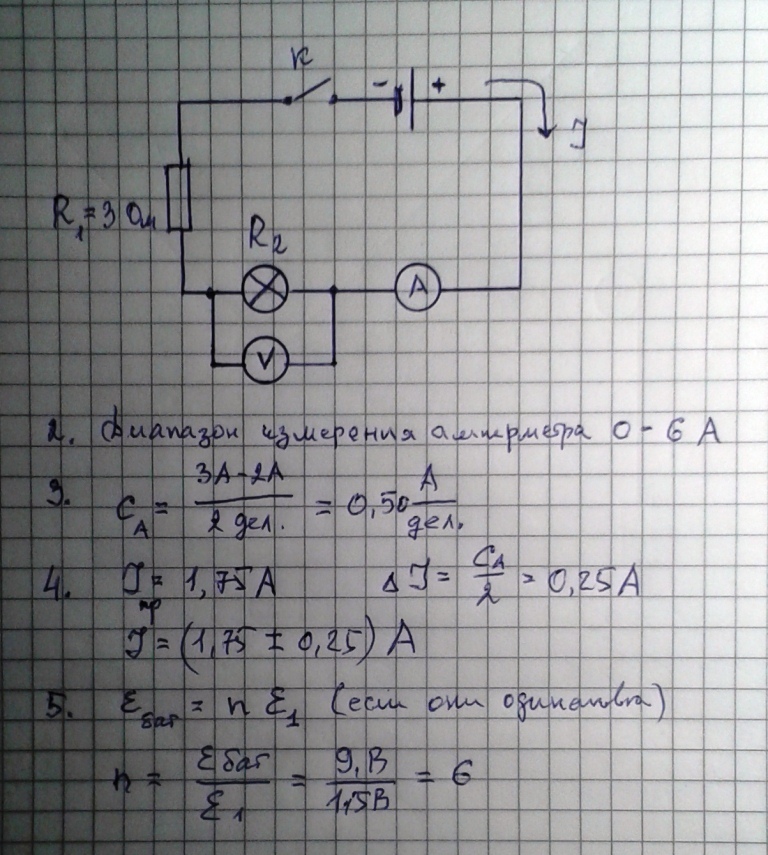 K
- +
I
R₁ = 3 Ом
R₂
A
V
2. Диапазон измерения амперметра 0 - 6 А
3. C_A = (3А - 2А) / (2 дел.) = 0,50 А/дел.
4. I_пр = 1,75 А ΔI = C_A / 2 = 0,25 А
I = (1,75 ± 0,25) А
5. Ɛ_бат = n Ɛ₁ (если они одинаковы)
n = Ɛ_бат / Ɛ₁ = 9,В / 1,5В = 6